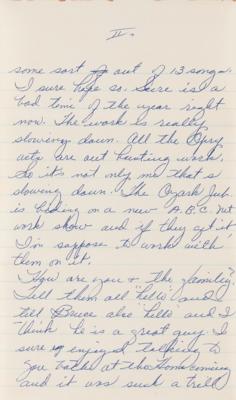 II.
some sort out of 13 songs.
I sure hope so. Sure is a
bad time of the year right
now. The work is really
slowing down. All the Opry
acts are out hunting work,
so it's not only me that's
slowing down. The Ozark Jub.
is being on a new A.B.C. Net
work show and if they get it
I'm suppose to work with
them on it.
How are you + the family?
Tell them all "hello" and
tell Bruce also hello and I
think he is a great guy. I
sure enjoyed talking to
you both at the Homecoming
and it was such a trill